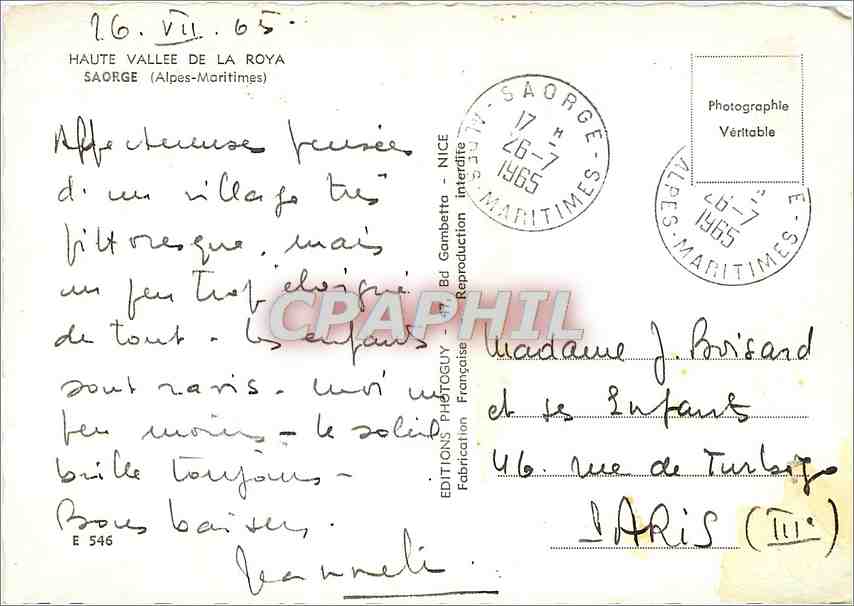 26. VII. 65.
HAUTE VALLEE DE LA ROYA
SAORGE (Alpes-Maritimes)
Affectueuses pensées
d'un village très
pittoresque, mais
un peu trop éloigné
de tout. Les enfants
sont ravis. moi un
peu moins - le soleil
brille toujours -
Bons baisers.
Jeanneli
E 546
EDITIONS PHOTOGUY - 47, Bd Gambetta - NICE
Fabrication Française Reproduction interdite
SAORGE
17 H
26-7
1965
ALPES-MARITIMES
Photographie
Véritable
E
26-7
1965
ALPES-MARITIMES
CPAPHIL
Madame J. Boisard
et ses Enfants
46. rue de Turbigo
PARIS (IIIe)